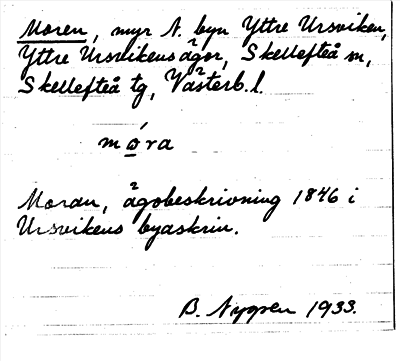 Moren, myr N. byn Yttre Ursviken,
Yttre Ursvikens ågor, Skellefteå sn,
Skellefteå tg, Västerb. l.
móra
Moran, ägobeskrivning 1846 i
Ursvikens byaskrin.
B. Nygren 1933.